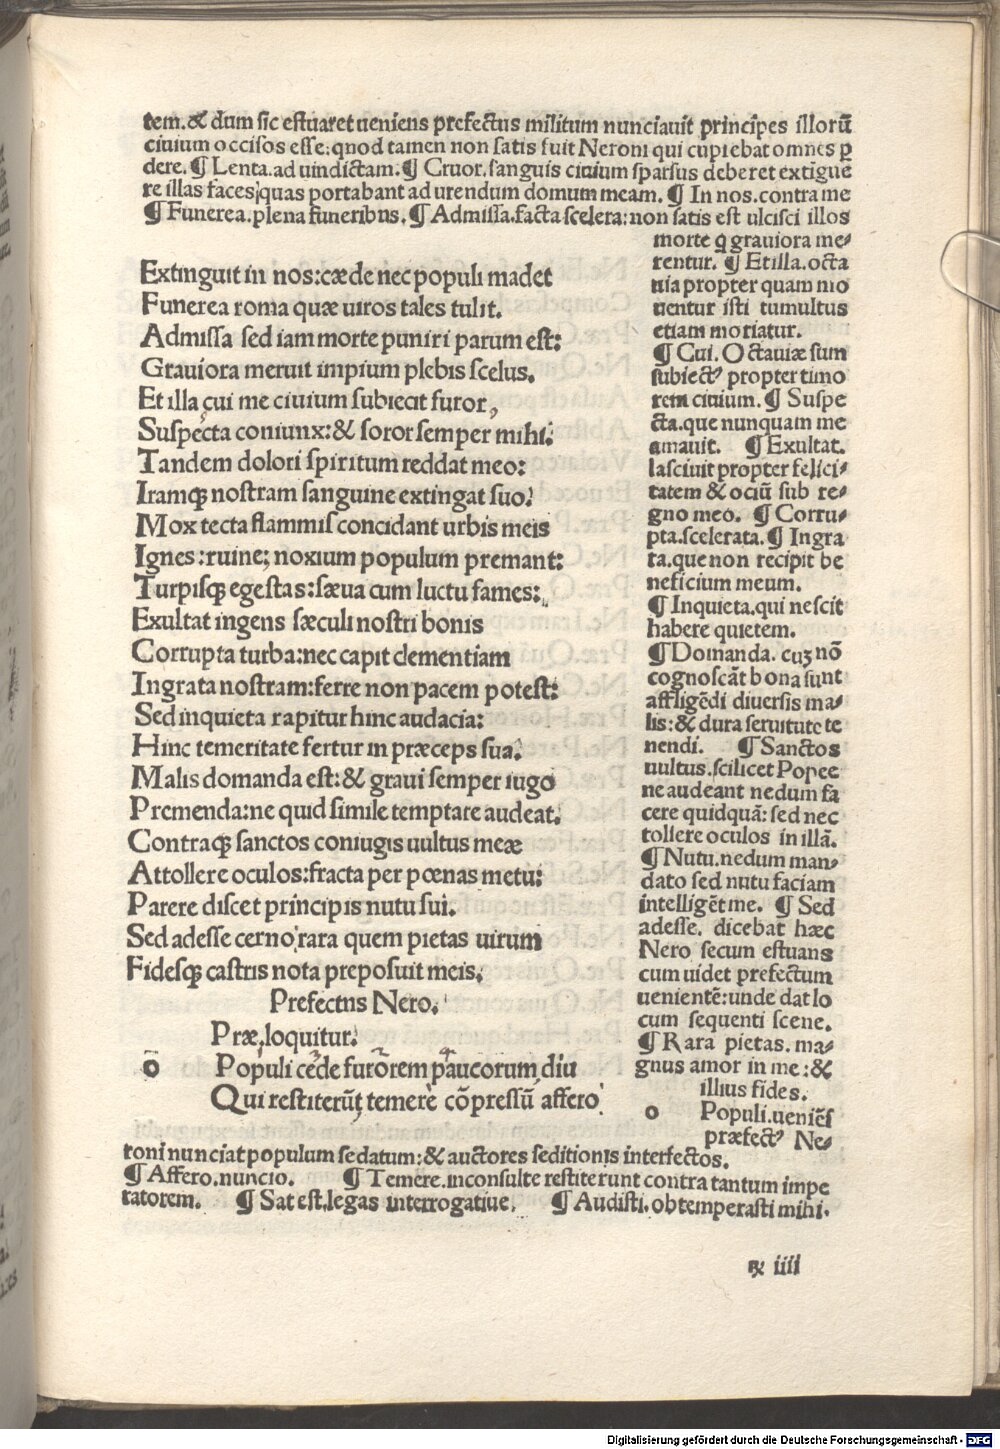 tem.& dum sic estuaret ueniens prefectus militum nunciauit principes illorū
ciuium occisos esse:qnod tamen non satis fuit Neroni qui cupiebat omnes ꝑ
dere.¶ Lenta.ad uindictam.¶ Cruor.sanguis ciuium sparsus deberet extīgue
re illas faces;quas portabant ad urendum domum meam. ¶ In nos.contra me
¶ Funerea.plena funeribns.¶ Admissa.facta scelera:non satis est ulcisci illos
morte q̄ grauiora me-
rentur. ¶ Et illa.octa
uia propter quam mo
uentur isti tumultus
etiam moriatur.
¶ Cui. Octauiæ sum
subiectꝰ propter timo
rem ciuium.¶ Suspe
cta.que nunquam me
amauit. ¶ Exultat.
lasciuit propter felici-
tatem & ociū sub re-
gno meo. ¶ Corru-
pta.scelerata.¶ Ingra
ta.que non recipit be
neficium meum.
¶ Inquieta.qui nescit
habere quietem.
¶ Domanda. cuꝫ nō
cognoscāt bona sunt
affligēdi diuersis ma-
lis:& dura seruitute te
nendi. ¶ Sanctos
uultus.scilicet Popee
ne audeant nedum fa
cere quidquā: sed nec
tollere oculos in illā.
¶ Nutu.nedum man-
dato sed nutu faciam
intelligēt me. ¶ Sed
adesse. dicebat hæc
Nero secum estuans
cum uidet prefectum
uenientē:unde dat lo
cum sequenti scene.
¶ Rara pietas. ma-
gnus amor in me :&
illius fides.
o Populi.ueniēs
præfectꝰ Ne-
Extinguit in nos:cæde nec populi madet
Funerea roma quæ uiros tales tulit.
Admissa sed iam morte puniri parum est:
Grauiora meruit impium plebis scelus.
Et illa cui me ciuium subiecit furor,
Suspecta coniunx:& soror semper mihi.
Tandem dolori spiritum reddat meo:
Iramqꝫ nostram sanguine extingat suo.
Mox tecta flammis concidant urbis meis
Ignes:ruine; noxium populum premant:
Turpisqꝫ egestas:sæua cum luctu fames:
Exultat ingens sæculi nostri bonis
Corrupta turba:nec capit clementiam
Ingrata nostram:ferre non pacem potest:
Sed inquieta rapitur hinc audacia:
Hinc temeritate fertur in præceps sua.
Malis domanda est:& graui semper iugo
Premenda:ne quid simile temptare audeat.
Contraqꝫ sanctos coniugis uultus meæ
Attollere oculos:fracta per pœnas metu:
Parere discet principis nutu sui.
Sed adesse cerno rara quem pietas uirum
Fidesqꝫ castris nota preposuit meis.
Prefectns Nero.
Præ.loquitur.
o Populi cede furorem paucorum diu
Qui restiterūt temere cōpressū affero
roni nunciat populum sedatum:& auctores seditionis interfectos.
¶ Affero.nuncio. ¶ Temere.inconsulte restiterunt contra tantum impe
ratorem. ¶ Sat est.legas interrogatiue. ¶ Audisti.obtemperasti mihi.
iiii
Digitalisierung gefördert durch die Deutsche Forschungsgemeinschaft - DFG